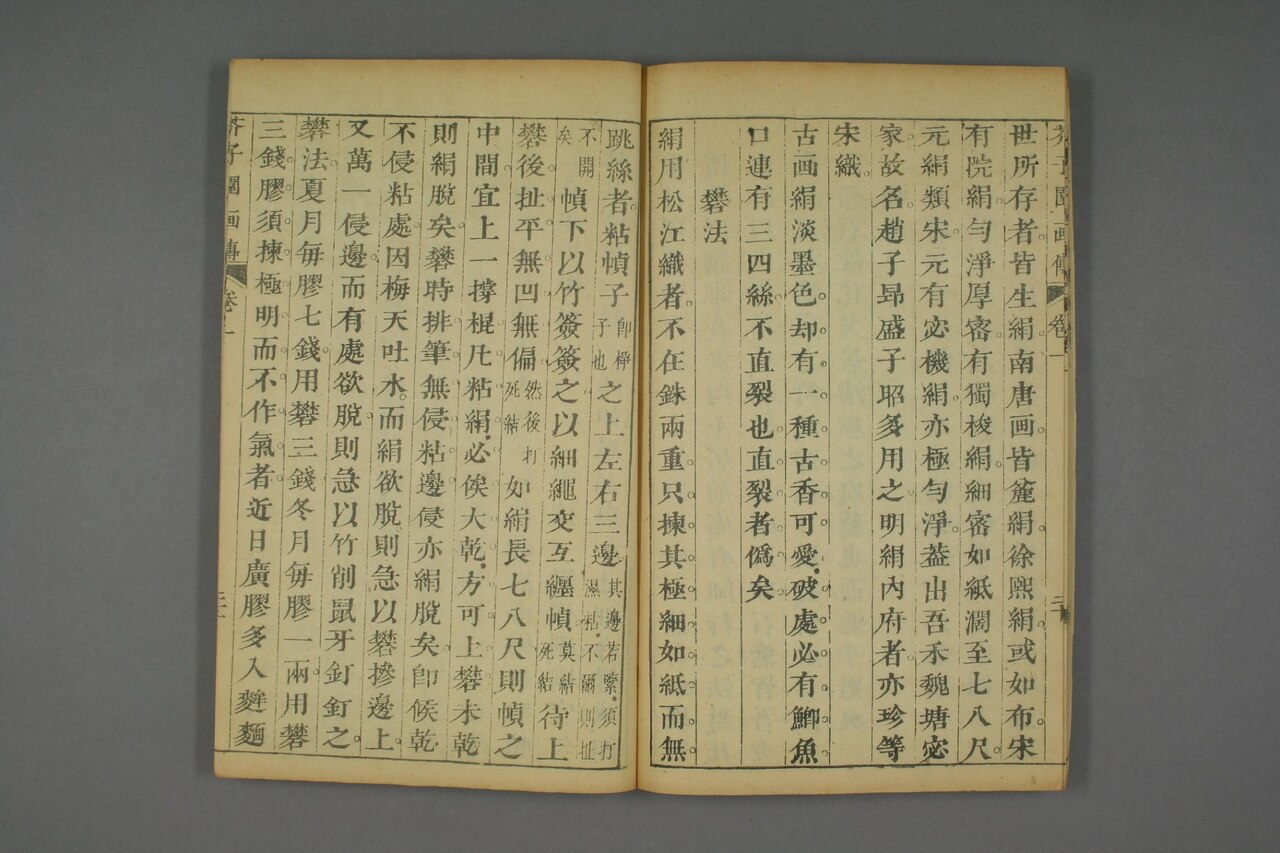 芥子園画傳 卷一
世所存者皆生絹南唐画皆麄絹徐熙絹或如布宋
有院絹勻淨厚密有獨梭絹細密如紙濶至七八尺
元絹類宋元有宓機絹亦極勻淨葢出吾禾魏塘宓
家故名趙子昻盛子昭多用之明絹內府者亦珍等
宋織
古画絹淡墨色却有一種古香可愛破處必有鯽魚
口連有三四絲不直裂也直裂者僞矣
礬法
絹用松江織者不在銖兩重只揀其極細如紙而無
跳絲者粘幀子卽楨子也之上左右三邊其邊若緊須打濕粘不爾則扯
不開矣幀下以竹簽簽之以細繩交互纒幀莫結死結待上
礬後扯平無凹無偏然後打死結如絹長七八尺則幀之
中間宜上一撐棍凡粘絹必俟大乾方可上礬未乾
則絹脫矣礬時排筆無侵粘邊侵亦絹脫矣卽候乾
不侵粘處因梅天吐水而絹欲脫則急以礬摻邊上
又萬一侵邊而有處欲脫則急以竹削鼠牙釘釘之
礬法夏月每膠七錢用礬三錢冬月每膠一兩用礬
三錢膠須揀極明而不作氣者近日廣膠多入麫麵
芥子園画傳 卷一